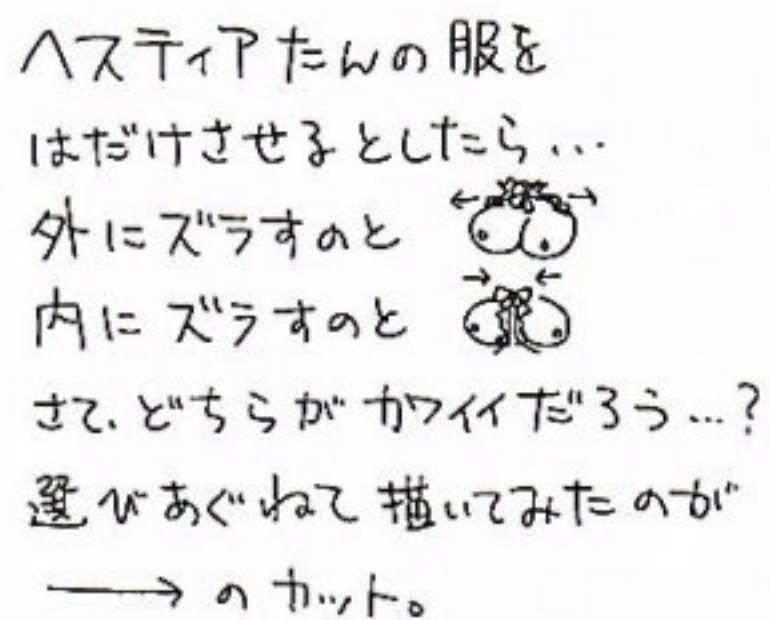 ヘスティアたんの服を
はだけさせるとしたら…
外にズラすのと
内にズラすのと
さて、どちらがカワイイだろう…?
選びあぐねて描いてみたのが
→のカット。